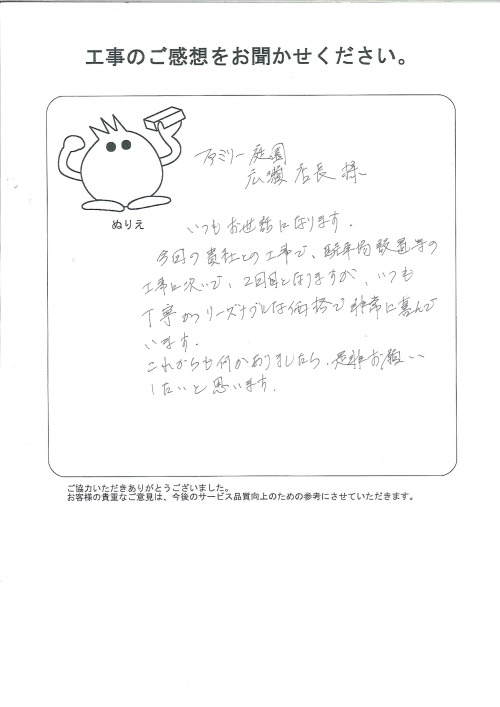 工事のご感想をお聞かせください。
ぬりえ
ファミリー庭園
広瀬店長様
いつもお世話になります。
今回の貴社との工事で、駐車場設置等の
工事に次いで、2回目となりますが、いつも
丁寧かつリーズナブルな価格で非常に喜んで
います。
これからも何かありましたら、是非お願い
したいと思います。
ご協力いただきありがとうございました。
お客様の貴重なご意見は、今後のサービス品質向上のための参考にさせていただきます。